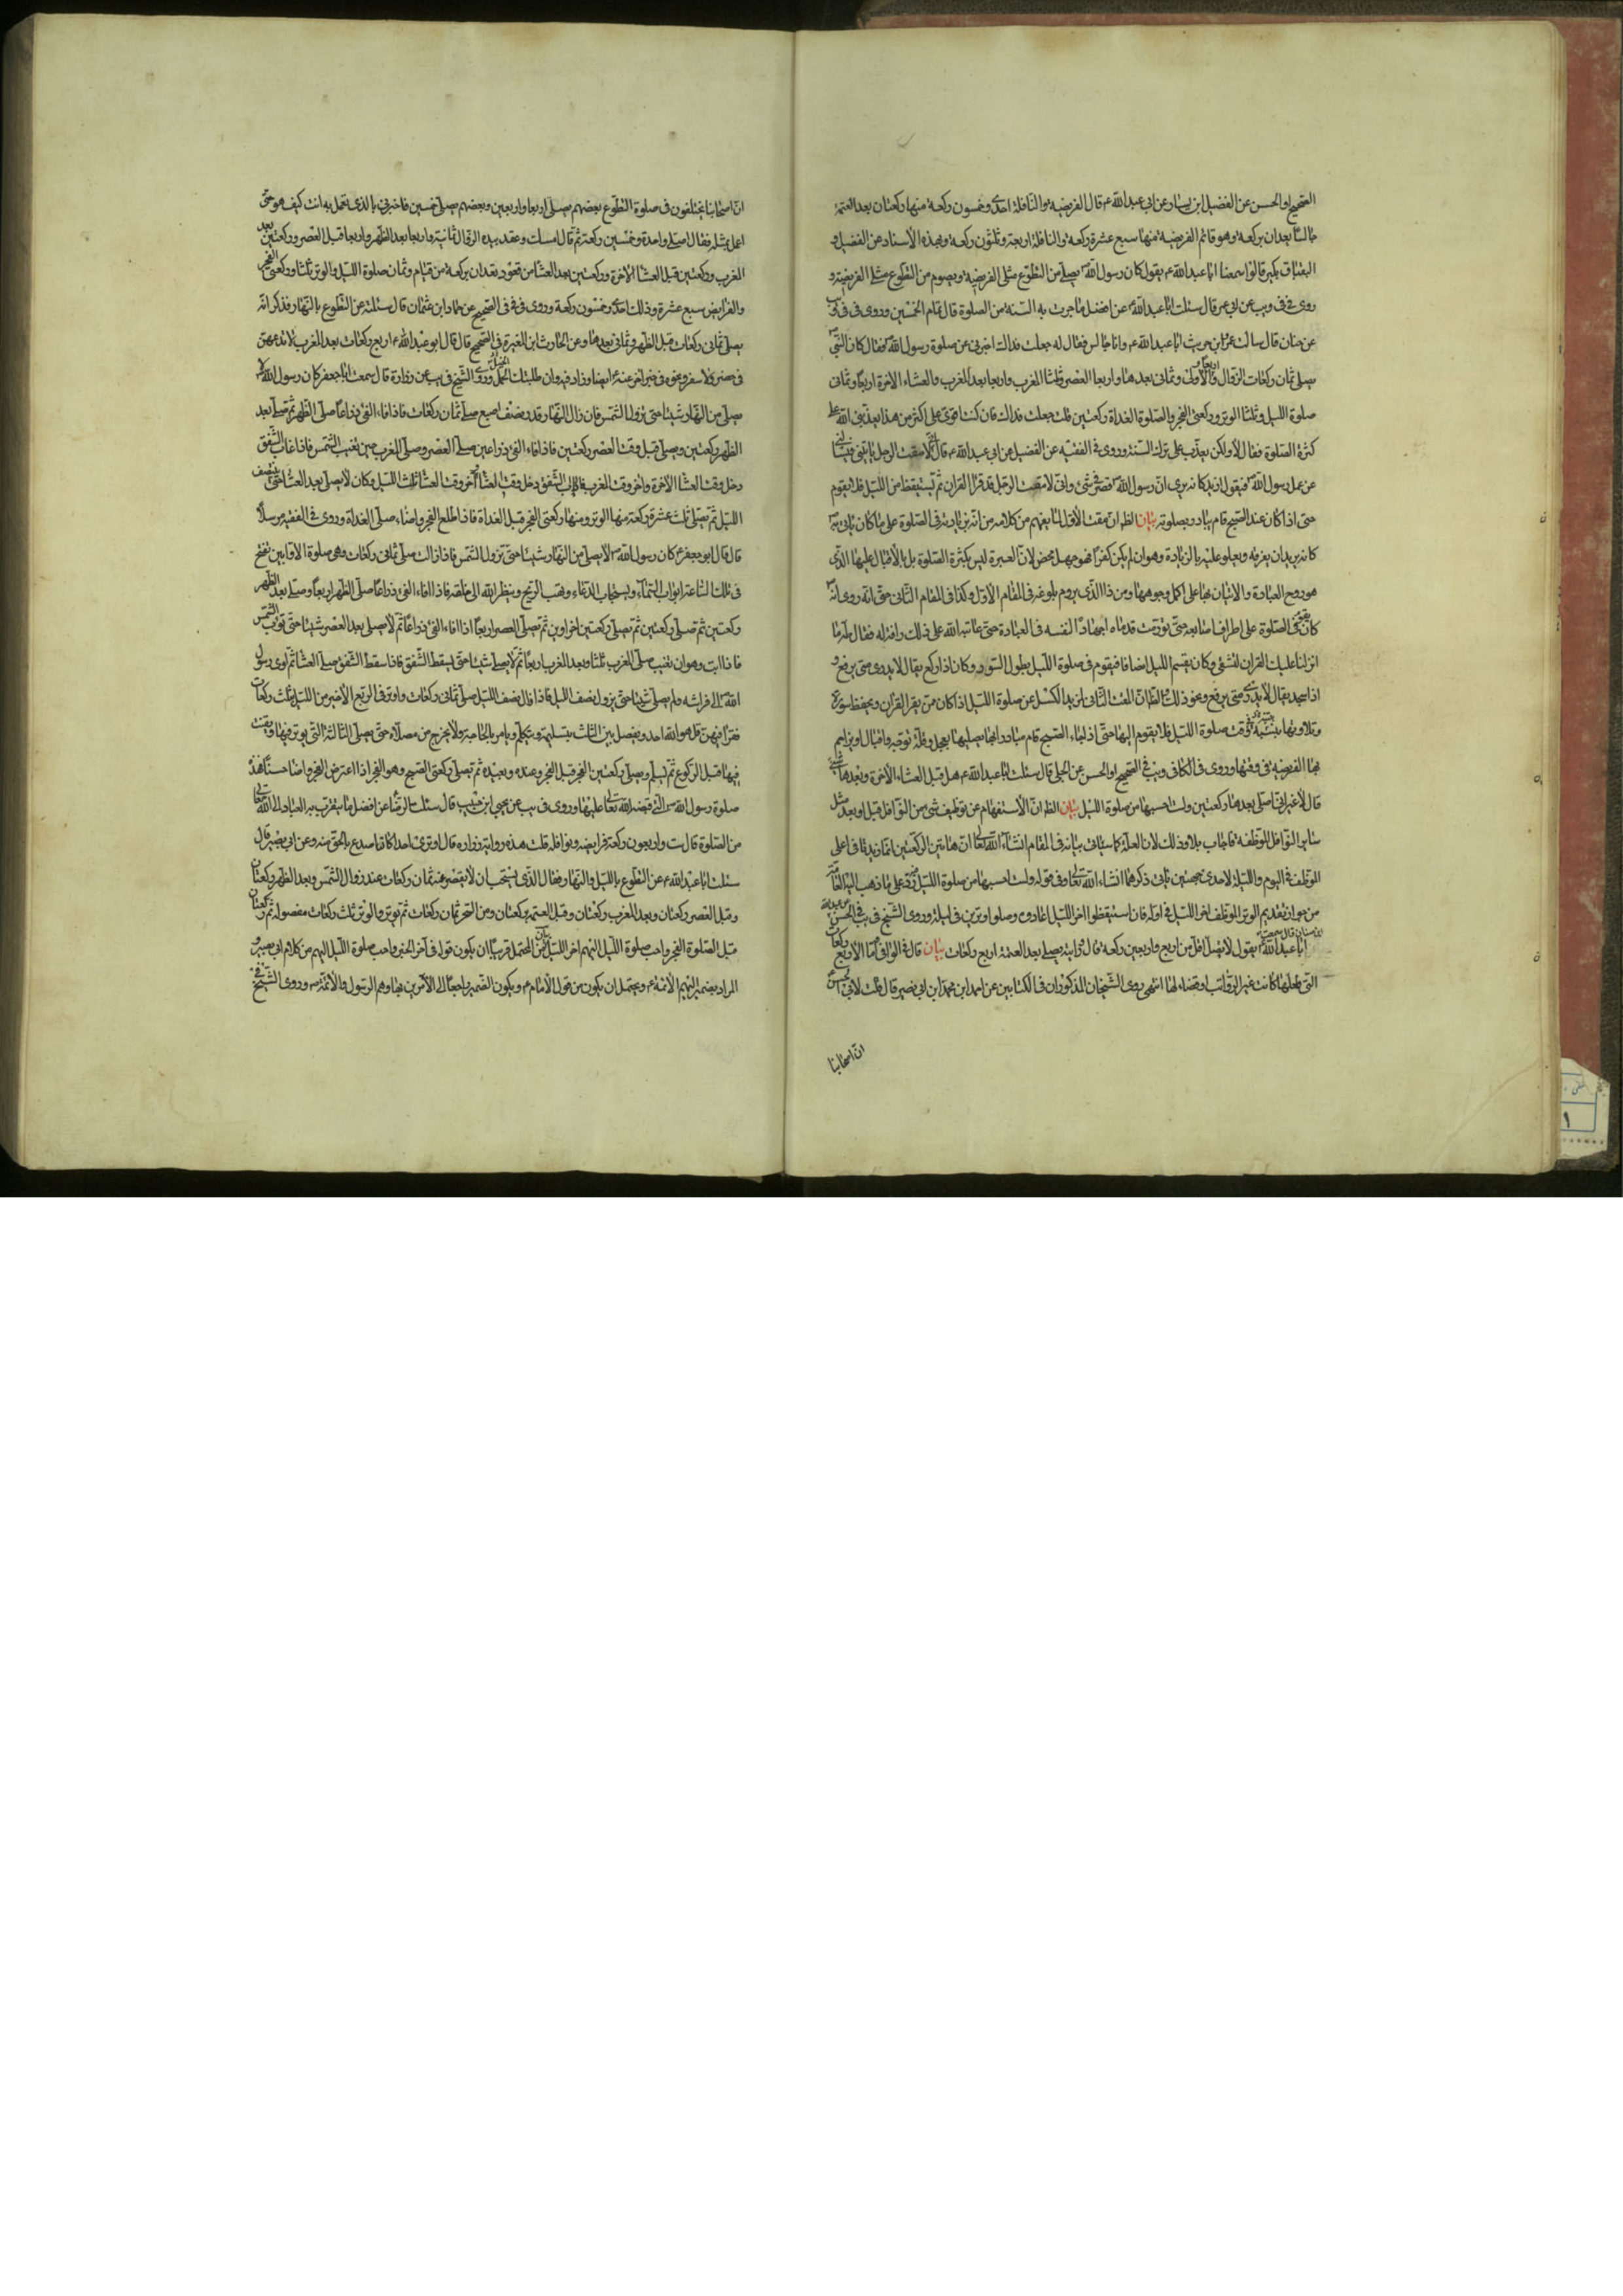 الصحيح او الحسن عن الفضيل ابن يسار عن ابي عبد الله ع قال الفريضه والنافلة احدى وخمسون ركعة منها ركعتان بعد العتمة
جالسا بعدان بركعة وهو قائم الفريضية منها سبع عشرة ركعة والنافلة اربعة وثلثون ركعة وبهذه الاسناد عن الفضيل و
البقباق وبكير قالوا سمعنا ابا عبد الله ع يقول كان رسول الله ص يصلي من التطوع مثلى الفريضية ويصوم من التطوع مثلى الفريضية و
روى في في ويب عن ابي عمير قال سئلت ابا عبد الله ع عن افضل ما جرت به السنة من الصلوة قال تمام الخمسين وروى فى فى و يب
عن حنان قال سالت عمرو ابن حريث ابا عبد الله ع وانا جالس فقال له جعلت فداك اخبرني عن صلوة رسول الله ص فقال كان النبي ص
يصلي ثمان ركعات الزوال واربعا الاولى وثماني بعدها واربعا العصر وثلثا المغرب واربعا بعد المغرب والعشاء الاخرة اربعا وثماني
صلوة الليل وثلثا الوتر وركعتي الفجر والصلوة الغداة ركعتين قلت جعلت فداك فان كنت اقوى على اكثر من هذا يعذبني الله على
كثرة الصلوة فقال لا ولكن يعذب على ترك السنة وروى في الفقيه عن الفضيل عن ابي عبد الله ع قال انى لامقت الرجل ياتيني فيسألني
عن عمل رسول الله ص فيقول ازيد كانه يرى ان رسول الله ص قصر في شئ واني لامقت الرجل قد قرا القران ثم يستيقظ من الليل فلا يقوم
حتى اذا كان عند الصبح قام يبادر بصلوته بيان الظ ان مقت الاول لما يفهم من كلامه من انه بزيادته في الصلوة على ما كان ياتي به ص
كانه يريدان يعرفه ويعلو عليه بالزيادة وهو ان لم يكن كفرا فهو جهل محض لان العبرة ليس بكثرة الصلوة بل بالاقبال عليها الذى
هو روح العبادة والاتيان بها على اكمل وجوهها ومن ذا الذى يروم بلوغه في المقام الاول وكذا فى المقام الثاني حتى انه روى انه ص
كان يصلى الصلوة على اطراف اصابعه حتى تورمت قدماه اجهادا لنفسه فى العبادة حتى عاتبه الله على ذلك وانزل له فقال طه ما
انزلنا عليك القران لتشقى وكان يقسم الليل انصافا فيقوم في صلوة الليل بطول السور وكان اذا ركع يقال لا يدرى متى يرفع و
اذا سجد يقال لا يدرى متى يرفع ونحو ذلك الظ ان المقت الثانى لمزيد الكسل عن صلوة الليل اذا كان من يقرا القران ويحفظ سوره
وتلاوتها وقت صلوة الليل فلا يقوم اليها حتى اذا جاء الصبح قام مبادرا بها يصليها بعجل وقلة توجه واقبال او يزاحم
بها الفريضية في وقتها وروى فى الكافى ويب في الصحيح او الحسن عن الحلبي قال سئلت ابا عبد الله ع هل قبل العشاء الاخرة وبعدها شئ
قال لا غير اني اصلي بعدها ركعتين ولست احسبها من صلوة الليل بيان الظ ان الاستفهام عن توظيف شئ من النوافل قبل او بعد مثل
ساير النوافل الموظفة فاجاب بلا وذلك لان العلة كما سياتى بيانه فى المقام انشاء الله تعالى ان هاتين الركعتين انما زيدتا فى اعلى
الموظف في اليوم والليلة لاحدى جهتين ياتى ذكرهما انشاء الله تعالى وفي قوله ولست احسبها من صلوة الليل رد على ما ذهب اليه العامة
من جواز تقديم الوتر الموظف اخر الليل في اوله فان استيقظوا اخر الليل اعادوه وصلوا وترين فى ليلة وروى الشيخ فى يب في الحسن عن عبد الله
ابن سنان قال سمعت
ابا عبد الله ع يقول لا تصل اقل من اربع واربعين ركعة قال ورايته يصلي بعد العتمة اربع ركعات بيان قال في الوافى اما الاربع ركعات
التي فعلها كانت غير الرواتب او قضاء لها انتهى روى الشيخان المذكوران فى الكتابين عن احمد ابن محمد ابن ابي نصير قال قلت لابي الحسن ع
ان اصحابنا
ان اصحابنا يختلفون فى صلوة التطوع بعضهم يصلي اربعا واربعين وبعضهم يصلي خمسين فاخبرني بالذى تعمل به انت كيف هو حتى
اعمل بمثله فقال اصلي واحدة وخمسين ركعة ثم قال امسك وعقد بيده الزوال ثمانية واربعا بعد الظهر واربعا قبل العصر وركعتين بعد
المغرب وركعتين قبل العشاء الاخرة وركعتين بعد العشاء من قعود تعدان بركعة من قيام وثمان صلوة الليل والوتر ثلثا وركعتي الفجر
والفرايض سبع عشرة وذلك احد وخمسون ركعة وروى في في في الصحيح عن حماد ابن عثمان قال سئلته عن التطوع بالنهار فذكر انه
يصلي ثماني ركعات قبل الظهر وثماني بعدها وعن الحارث ابن المغيرة في الصحيح قال قال ابو عبد الله ع اربع ركعات بعد المغرب لا تدعهن
فى حضر ولا سفر ونحوه في خبر اخر عنه ع ايضا وزاد فيه وان طلبتك الخيل وروى الشيخ في يب عن زرارة قال سمعت ابا جعفر كان رسول الله ص لا
يصلي من النهار شيئا حتى تزول الشمس فان زال النهار قدر نصف اصبع صلى ثمان ركعات فاذا فاء الفئ ذراعا صلى الظهر ثم صلى بعد
الظهر ركعتين ويصلي قبل وقت العصر ركعتين فاذا فاء الفئ ذراعين صلى العصر وصلى المغرب حين تغيب الشمس فاذا غاب الشفق
دخل وقت العشاء الاخرة واخر وقت المغرب اياب الشفق فاذا اب الشفق دخل وقت العشاء واخر وقت العشاء ثلث الليل وكان لا يصلي بعد العشاء حتى ينتصف
الليل ثم يصلي ثلث عشرة ركعة منها الوتر ومنها ركعتي الفجر قبل الغداة فاذا طلع الفجر واضاء صلى الغداة وروى في الفقيه مرسلا
قال قال ابو جعفر ع كان رسول الله ص لا يصلي من النهار شيئا حتى تزول الشمس فاذا زالت صلى ثماني ركعات وهى صلوة الاوابين تفتح
فى تلك الساعة ابواب السماء ويستجاب الدعاء وتهب الريح وينظر الله الى خلقه فاذا فاء الفئ ذراعا صلى الظهر اربعا وصلى بعد الظهر
ركعتين ثم صلى ركعتين ثم تصلي ركعتين اخراوين ثم تصلي العصر اربعا اذا فاء الفئ ذراعا ثم لا يصلى بعد العصر شيئا حتى تؤب الشمس
فاذا ابت وهو ان تغيب صلى المغرب ثلثا وبعد المغرب اربعا ثم لا يصلي شيئا حتى يسقط الشفق فاذا سقط الشفق صلى العشاء ثم اوى رسول
الله ص الى فراشه ولم يصلي شيئا حتى يزول نصف الليل فاذا زال نصف الليل صلى ثماني ركعات واوتر فى الربع الاخير من الليل ثلث ركعات
فقرا فيهن قل هو الله احد ويفصل بين الثلث بتسليمة ويتكلم ويامر بالحاجة ولا يخرج من مصلاه حتى يصلي الثالثة التي يوتر فيها ويقنت
فيها قبل الركوع ثم يسلم ويصلي ركعتين الفجر قبل الفجر وعنده وبعيده ثم تصلي ركعتي الصبح وهو الفجر اذا اعترض الفجر واضاء حسنا هذه
صلوة رسول الله ص التي قبضه الله تعالى عليها وروى فى يب عن يحيى ابن حبيب قال سئلت الرضا ع عن افضل ما يتقرب به العباد الى الله تعالى
من الصلوة قال ست واربعون ركعة فرايضه ونوافله قلت هذه رواية زراره قال اوترى احدا كان اصدع بالحق منه وعن ابي بصير قال
سئلت ابا عبد الله ع عن التطوع بالليل والنهار فقال الذى يستحب ان لا يقصر عنه ثمان ركعات عند زوال الشمس وبعد الظهر ركعتان
وقبل العصر ركعتان وبعد المغرب ركعتان وقبل العتمة ركعتان ومن السحر ثمان ركعات ثم يوتر والوتر ثلث ركعات مفصولة ثم ركعتان
قبل الصلوة الفجر واحب صلوة الليل اليهم اخر الليل بيان من المحتمل قريبا ان يكون قوله فى آخر الخبر واحب صلوة الليل اليهم من كلام ابي بصير و
المراد بضمير اليهم الائمة ع ويحتمل ان يكون من قول الامام ع ويكون الضمير راجعا الى الآمرين بها وهم الرسول والائمة ص وروى الشيخ في